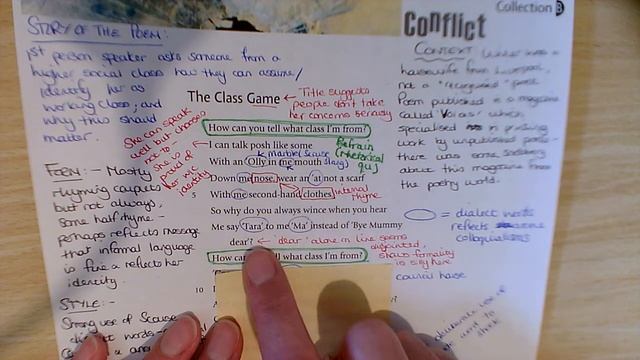 Collection
Conflict
STORY OF THE POEM:-
1st person speaker asks someone from a
higher social class how they can assume/
identify her as
working class, and
why this should
matter.
CONTEXT
housewife from Liverpool,
not a "recognised" poet.
Poem published in a magazine
called 'Voices' which
specialised in printing
work by unpublished poets-
there was some
about this magazine from
the poetry world.
The Class Game
Title suggests
people don't take
her concerns seriously
She can speak
well but chooses
not to -
she is
proud of
her
identity
How can you tell what class I'm from?
Refrain
(rhetorical
qu)
I can talk posh like some
marble (Scouse
slang)
With an 'Olly in me mouth
Down me nose, wear an 'at not a scarf
5 With me second-hand clothes
internal
rhyme
So why do you always wince when you hear
Me say 'Tara' to me 'Ma' instead of 'Bye Mummy
dear'?
'dear' alone in line seems
disjointed,
shows formality
is silly here
How can tell what class I'm from?
10
FORM:- Mostly
rhyming couplets
but not always,
some half rhyme -
perhaps reflects message
that informal language
is fine & reflects her
identity.
= dialect words
reflects
colloquialisms
council house
STYLE:-
Strong use of Scouse